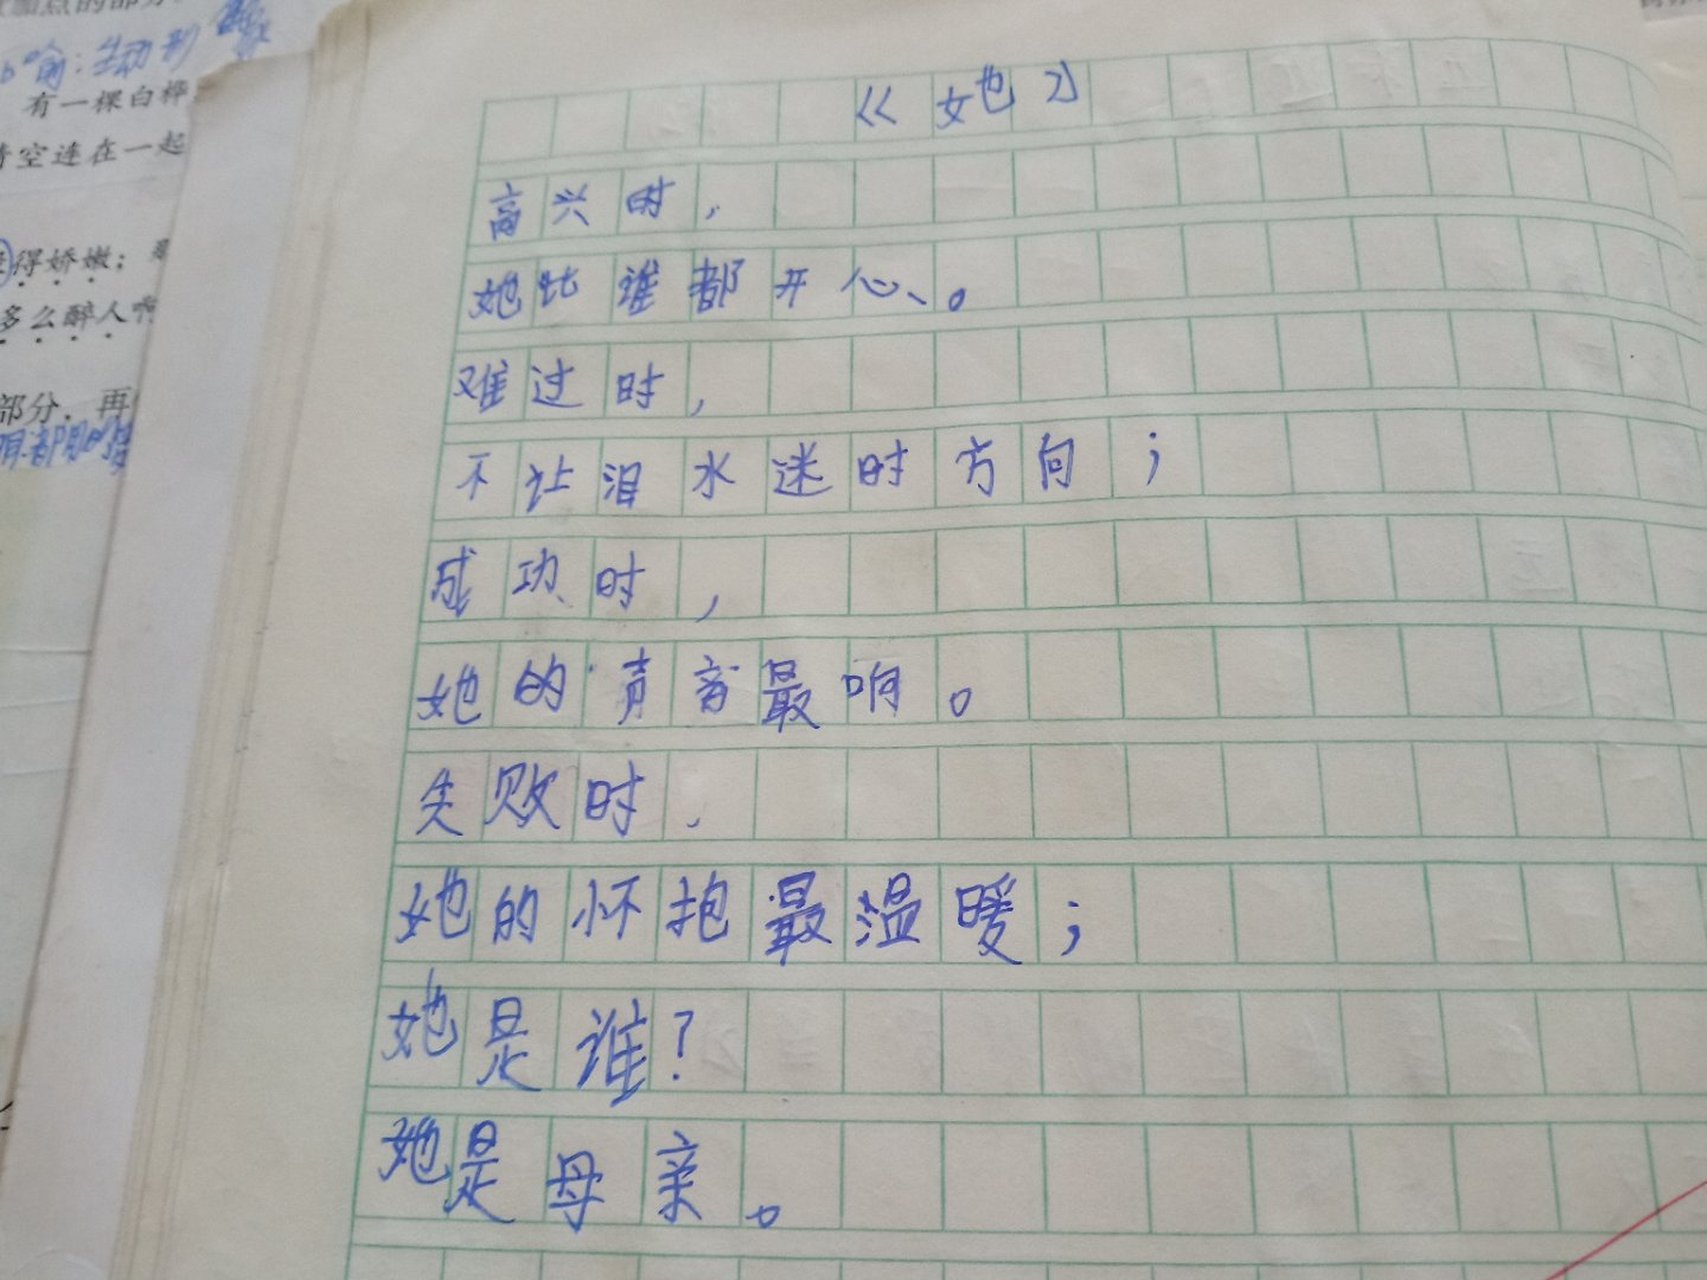 加点的部分
喻：生动形
有一棵白桦
青空连在一起
得娇嫩；
多么醉人啊
部分，再
《她》
高兴时，
她比谁都开心、。
难过时，
不让泪水迷时方向；
成功时，
她的青音最响。
失败时，
她的怀抱最温暖；
她是谁？
她是母亲。